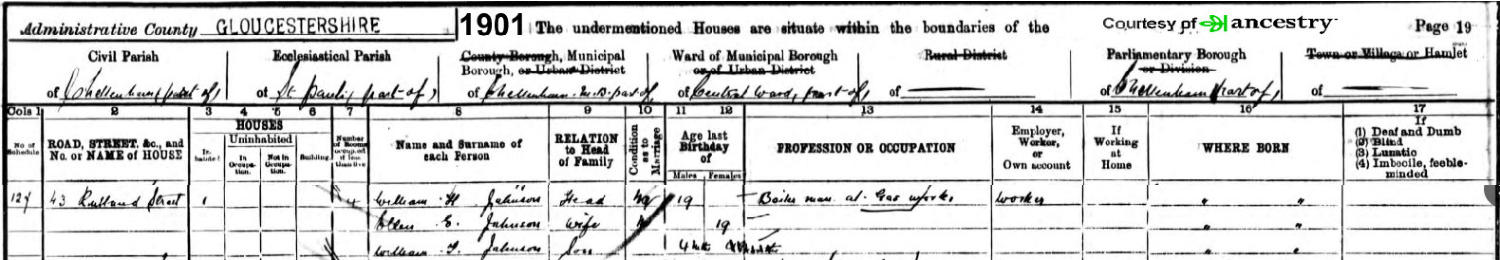 Administrative County GLOUCESTERSHIRE 1901 The undermentioned Houses are situate within the boundaries of the Courtesy of ancestry Page 19
Civil Parish Ecclesiastical Parish County Borough, Municipal Borough, or Urban District Ward of Municipal Borough or of Urban District Rural District Parliamentary Borough or Division Town or Village or Hamlet
of Cheltenham (part of) of St. Paul's (part of) of Cheltenham M.B. part of of Central Ward, part of of of Cheltenham part of of
Cols 1 2 3 4 5 6 7 8 9 10 11 12 13 14 15 16 17
No. of Schedule ROAD, STREET, &c., and No. or NAME of HOUSE HOUSES Inhabited Uninhabited In Occupation. Not in Occupation. Building Number of Rooms occupied if less than five Name and Surname of each Person RELATION to Head of Family Condition as to Marriage Age last Birthday of Males Females PROFESSION OR OCCUPATION Employer, Worker, or Own account If Working at Home WHERE BORN If (1) Deaf and Dumb (2) Blind (3) Lunatic (4) Imbecile, feeble-minded
127 43 Rutland Street 1 4 William H Johnson Head M 19 man at Gas works worker " "
Ellen E. Johnson Wife M 19 " "
William Johnson Son 4 " "